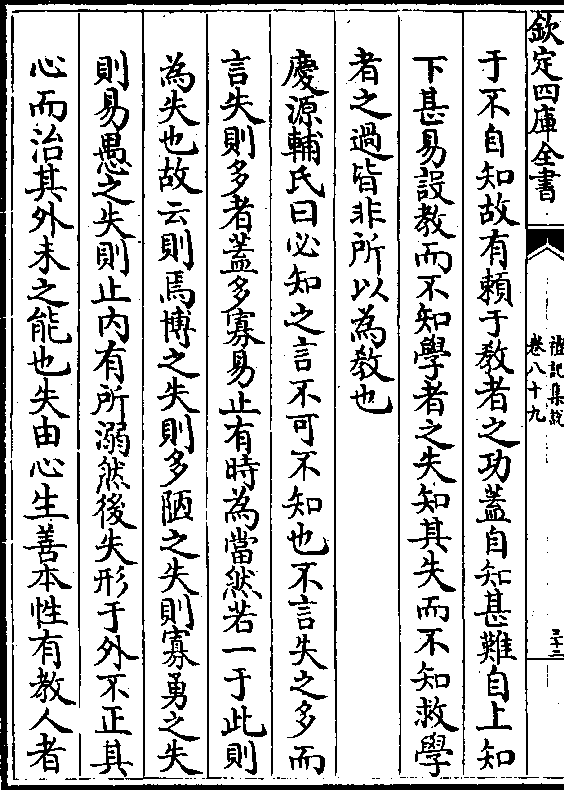 欽定四庫全書
禮記集説
卷八十九
三十二
于不自知故有頼于教者之功蓋自知甚難自上知
下甚易設教而不知學者之失知其失而不知救學
者之過皆非所以為教也
慶源輔氏曰必知之言不可不知也不言失之多而
言失則多者蓋多寡易止有時為當然若一于此則
為失也故云則焉博之失則多陋之失則寡勇之失
則易愚之失則止内有所溺然後失形于外不正其
心而治其外未之能也失由心生善本性有教人者